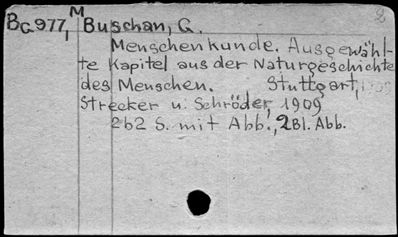 BG 977, M Buschan, G.
Menschenkunde. Ausgewähl-
te Kapitel aus der Naturgeschichte
des Menschen. Stuttgart,
Strecker u. Schröder, 1909
262 S. mit Abb., 2 Bl. Abb.